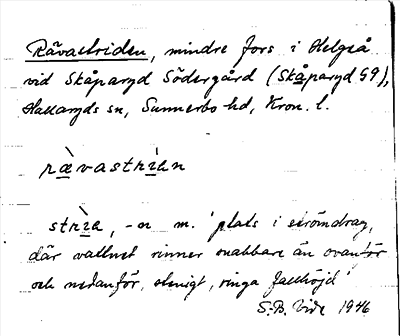 Rävastriden, mindre fors i Helgeå
vid Skåparyd Södergård (Skåparyd G9),
Hallaryds sn, Sunnerbo hd, Kron. l.
rævastrìən
strìə, -n m. 'plats i strömdrag,
där vattnet rinner snabbare än ovanför
och nedanför, stenigt, ringa fallhöjd'
S.B. Vide 1946